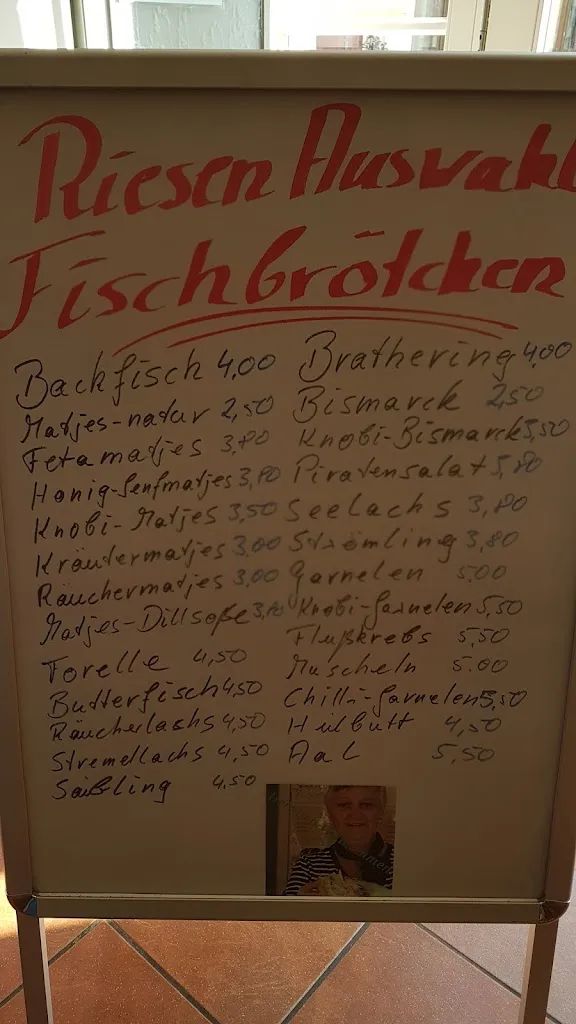 Riesen Auswahl
Fischbrötchen
Backfisch 4,00
Matjes-natur 2,50
Fetamatjes 3,80
Honig-Senfmatjes 3,80
Knobi-Matjes 3,50
Kräutermatjes 3,00
Räuchermatjes 3,00
Matjes-Dillsoße 3,80
Forelle 4,50
Butterfisch 4,50
Räucherlachs 4,50
Stremellachs 4,50
Saibling 4,50
Brathering 4,00
Bismarck 2,50
Knobi-Bismarck 3,50
Piratensalat 5,80
Seelachs 3,80
Strömling 3,80
Garnelen 5,00
Knobi-Garnelen 5,50
Flußkrebs 5,50
Muscheln 5.00
Chilli-Garnelen 5,50
Hilbutt 4,50
Aal 5,50